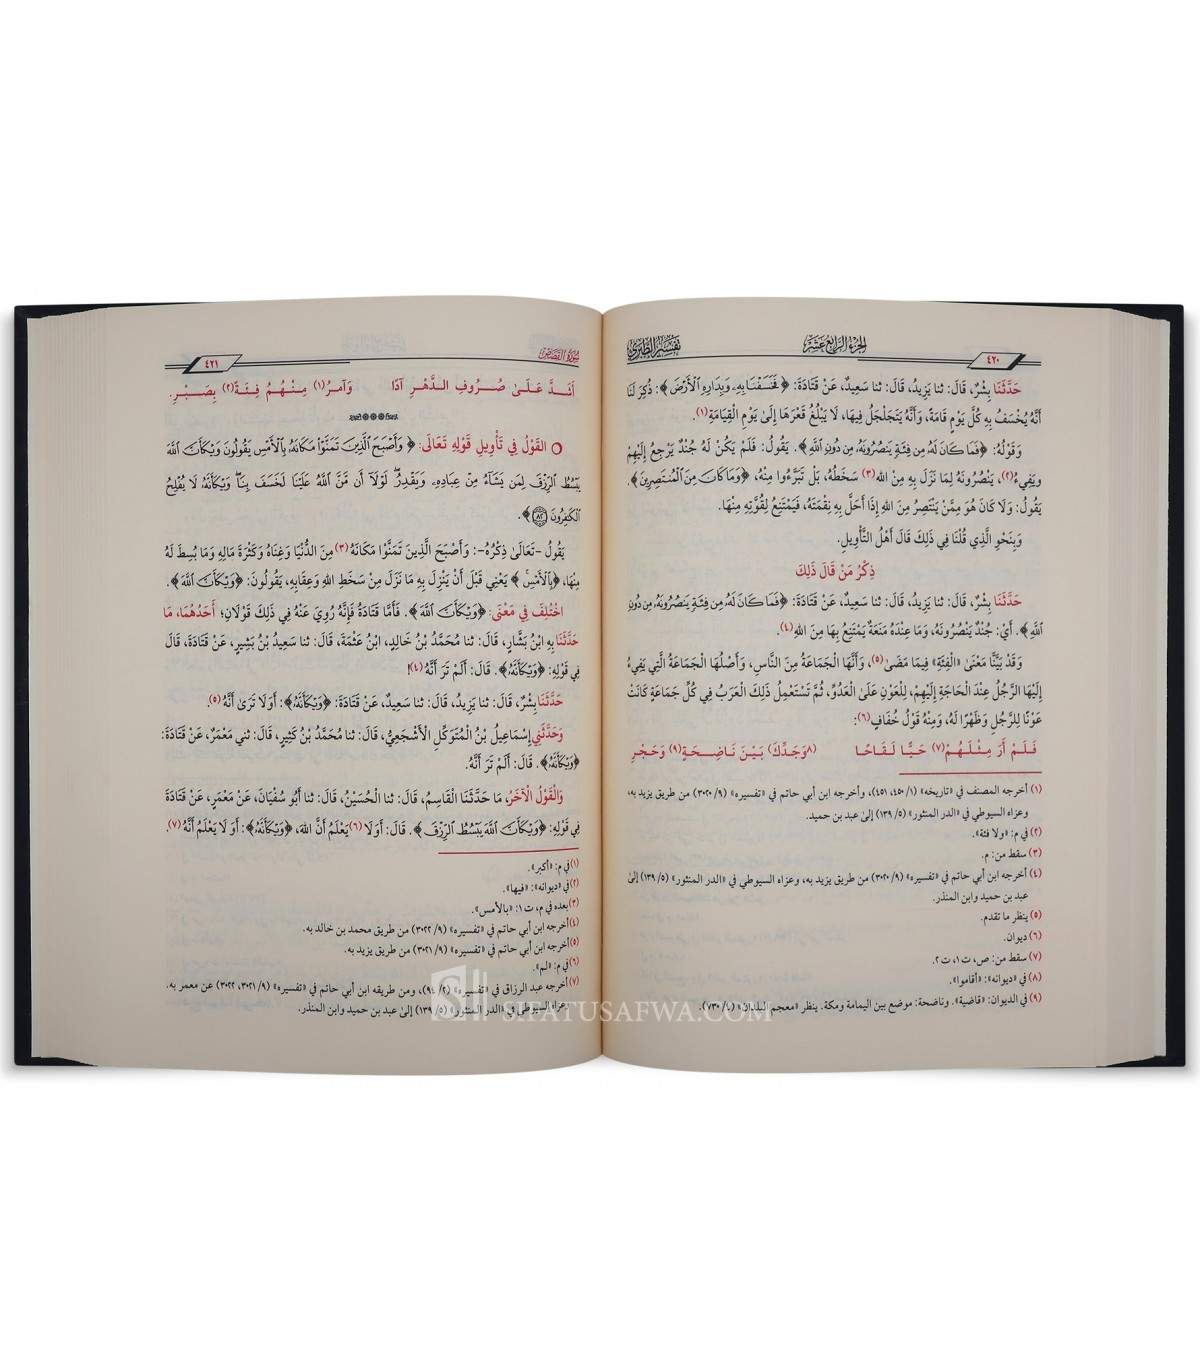 ٤٢٠
الجزء الرابع عشر
تفسير الطبري
حَدَّثَنَا بِشْرٌ، قَالَ: ثنا يَزِيدُ، قَالَ: ثنا سَعِيدٌ، عَنْ قَتَادَةَ: ﴿فَخَسَفْنَا بِهِۦ وَبِدَارِهِ ٱلْأَرْضَ﴾: ذُكِرَ لَنَا
أَنَّهُ يُخْسَفُ بِهِ كُلَّ يَوْمٍ قَامَةً، وَأَنَّهُ يَتَجَلْجَلُ فِيهَا، لَا يَبْلُغُ قَعْرَهَا إِلَىٰ يَوْمِ الْقِيَامَةِ(١).
وَقَوْلُهُ: ﴿فَمَا كَانَ لَهُۥ مِن فِئَةٍ يَنصُرُونَهُۥ مِن دُونِ ٱللَّهِ﴾. يَقُولُ: فَلَمْ يَكُنْ لَهُ جُنْدٌ يَرْجِعُ إِلَيْهِمْ
وَيَفِيءُ(٢)، يَنْصُرُونَهُ لِمَا نَزَلَ بِهِ مِنَ اللهِ(٣) سَخَطُهُ، بَلْ تَبَرَّءُوا مِنْهُ، ﴿وَمَا كَانَ مِنَ ٱلْمُنتَصِرِينَ﴾.
يَقُولُ: وَلَا كَانَ هُوَ مِمَّنْ يَنْتَصِرُ مِنَ اللهِ إِذَا أَحَلَّ بِهِ نِقْمَتَهُ، فَيَمْتَنِعُ لِقُوَّتِهِ مِنْهَا.
وَبِنَحْوِ الَّذِي قُلْنَا فِي ذَلِكَ قَالَ أَهْلُ التَّأْوِيلِ.
ذِكْرُ مَنْ قَالَ ذَلِكَ
حَدَّثَنَا بِشْرٌ، قَالَ: ثنا يَزِيدُ، قَالَ: ثنا سَعِيدٌ، عَنْ قَتَادَةَ: ﴿فَمَا كَانَ لَهُۥ مِن فِئَةٍ يَنصُرُونَهُۥ مِن دُونِ
ٱللَّهِ﴾. أَيْ: جُنْدٌ يَنْصُرُونَهُ، وَمَا عِنْدَهُ مَنَعَةٌ يَمْتَنِعُ بِهَا مِنَ اللهِ(٤).
وَقَدْ بَيَّنَّا مَعْنَىٰ «الْفِئَةِ» فِيمَا مَضَىٰ(٥)، وَأَنَّهَا الْجَمَاعَةُ مِنَ النَّاسِ، وَأَصْلُهَا الْجَمَاعَةُ الَّتِي يَفِيءُ
إِلَيْهَا الرَّجُلُ عِنْدَ الْحَاجَةِ إِلَيْهِمْ، لِلْعَوْنِ عَلَىٰ الْعَدُوِّ، ثُمَّ تَسْتَعْمِلُ ذَلِكَ الْعَرَبُ فِي كُلِّ جَمَاعَةٍ كَانَتْ
عَوْنًا لِلرَّجُلِ وَظَهْرًا لَهُ، وَمِنْهُ قَوْلُ خُفَافٍ(٦):
فَلَمْ أَرَ مِثْلَهُمْ(٧) حَيًّا لَقَاحًا (٨وَجَدِّكَ) بَيْنَ نَاضِحَةٍ(٩) وَحَجْرِ
(١) أخرجه المصنف في «تاريخه» (١/ ٤٥٠، ٤٥١)، وأخرجه ابن أبي حاتم في «تفسيره» (٩/ ٣٠٢٠) من طريق يزيد به،
وعزاه السيوطي في «الدر المنثور» (٥/ ١٣٩) إلىٰ عبد بن حميد.
(٢) في م: «ولا فئة».
(٣) سقط من: م.
(٤) أخرجه ابن أبي حاتم في «تفسيره» (٩/ ٣٠٢٠) من طريق يزيد به، وعزاه السيوطي في «الدر المنثور» (٥/ ١٣٩) إلىٰ
عبد بن حميد وابن المنذر.
(٥) ينظر ما تقدم.
(٦) ديوان.
(٧) سقط من: ص، ت ١، ت ٢.
(٨) في «ديوانه»: «أقاموا».
(٩) في الديوان: «قاضية». وناضحة: موضع بين اليمامة ومكة. ينظر «معجم البلدان» (٤/ ٧٣٠).
سورة القصص
٤٢١
أَشَدَّ عَلَىٰ صُرُوفِ الدَّهْرِ آدًا وَآمَرُ(١) مِنْهُمُ فِئَةً(٢) بِصَبْرِ.
○ القَوْلُ فِي تَأْوِيلِ قَوْلِهِ تَعَالَى: ﴿وَأَصْبَحَ ٱلَّذِينَ تَمَنَّوْا۟ مَكَانَهُۥ بِٱلْأَمْسِ يَقُولُونَ وَيْكَأَنَّ ٱللَّهَ
يَبْسُطُ ٱلرِّزْقَ لِمَن يَشَآءُ مِنْ عِبَادِهِۦ وَيَقْدِرُ ۖ لَوْلَآ أَن مَّنَّ ٱللَّهُ عَلَيْنَا لَخَسَفَ بِنَا ۖ وَيْكَأَنَّهُۥ لَا يُفْلِحُ
ٱلْكَٰفِرُونَ ٨٢﴾.
يَقُولُ -تَعَالَىٰ ذِكْرُهُ-: وَأَصْبَحَ الَّذِينَ تَمَنَّوْا مَكَانَهُ(٣) مِنَ الدُّنْيَا وَغِنَاهُ وَكَثْرَةَ مَالِهِ وَمَا بُسِطَ لَهُ
مِنْهَا، ﴿بِٱلْأَمْسِ﴾ يَعْنِي قَبْلَ أَنْ يَنْزِلَ بِهِ مَا نَزَلَ مِنْ سَخَطِ اللهِ وَعِقَابِهِ، يَقُولُونَ: ﴿وَيْكَأَنَّ ٱللَّهَ﴾.
اخْتُلِفَ فِي مَعْنَى: ﴿وَيْكَأَنَّ ٱللَّهَ﴾. فَأَمَّا قَتَادَةُ فَإِنَّهُ رُوِيَ عَنْهُ فِي ذَلِكَ قَوْلَانِ؛ أَحَدُهُمَا، مَا
حَدَّثَنَا بِهِ ابْنُ بَشَّارٍ، قَالَ: ثنا مُحَمَّدُ بْنُ خَالِدٍ، ابْنُ عَثْمَةَ، قَالَ: ثنا سَعِيدُ بْنُ بَشِيرٍ، عَنْ قَتَادَةَ، قَالَ
فِي قَوْلِهِ: ﴿وَيْكَأَنَّهُۥ﴾. قَالَ: أَلَمْ تَرَ أَنَّهُ(٤)!
حَدَّثَنَا بِشْرٌ، قَالَ: ثنا يَزِيدُ، قَالَ: ثنا سَعِيدٌ، عَنْ قَتَادَةَ: ﴿وَيْكَأَنَّهُۥ﴾: أَوَلَا تَرَىٰ أَنَّهُ(٥).
وَحَدَّثَنِي إِسْمَاعِيلُ بْنُ الْمُتَوَكِّلِ الْأَشْجَعِيُّ، قَالَ: ثنا مُحَمَّدُ بْنُ كَثِيرٍ، قَالَ: ثني مَعْمَرٌ، عَنْ قَتَادَةَ:
﴿وَيْكَأَنَّهُۥ﴾. قَالَ: أَلَمْ تَرَ أَنَّهُ.
وَالْقَوْلُ الْآخَرُ، مَا حَدَّثَنَا الْقَاسِمُ، قَالَ: ثنا الْحُسَيْنُ، قَالَ: ثنا أَبُو سُفْيَانَ، عَنْ مَعْمَرٍ، عَنْ قَتَادَةَ
فِي قَوْلِهِ: ﴿وَيْكَأَنَّ ٱللَّهَ يَبْسُطُ ٱلرِّزْقَ﴾. قَالَ: أَوَلَا(٦) يَعْلَمُ أَنَّ اللهَ، ﴿وَيْكَأَنَّهُۥ﴾: أَوَ لَا يَعْلَمُ أَنَّهُ(٧).
(١) في م: «أكبر».
(٢) في «ديوانه»: «فيها».
(٣) بعده في م، ت ١: «بالأمس».
(٤) أخرجه ابن أبي حاتم في «تفسيره» (٩/ ٣٠٢٢) من طريق محمد بن خالد به.
(٥) أخرجه ابن أبي حاتم في «تفسيره» (٩/ ٣٠٢١) من طريق يزيد به.
(٦) في م: «لم».
(٧) أخرجه عبد الرزاق في «تفسيره» (٢/ ٩٤)، ومن طريقه ابن أبي حاتم في «تفسيره» (٩/ ٣٠٢١، ٣٠٢٢) عن معمر به،
وعزاه السيوطي في «الدر المنثور» (٥/ ١٣٩) إلىٰ عبد بن حميد وابن المنذر.
SIFATUSAFWA.COM